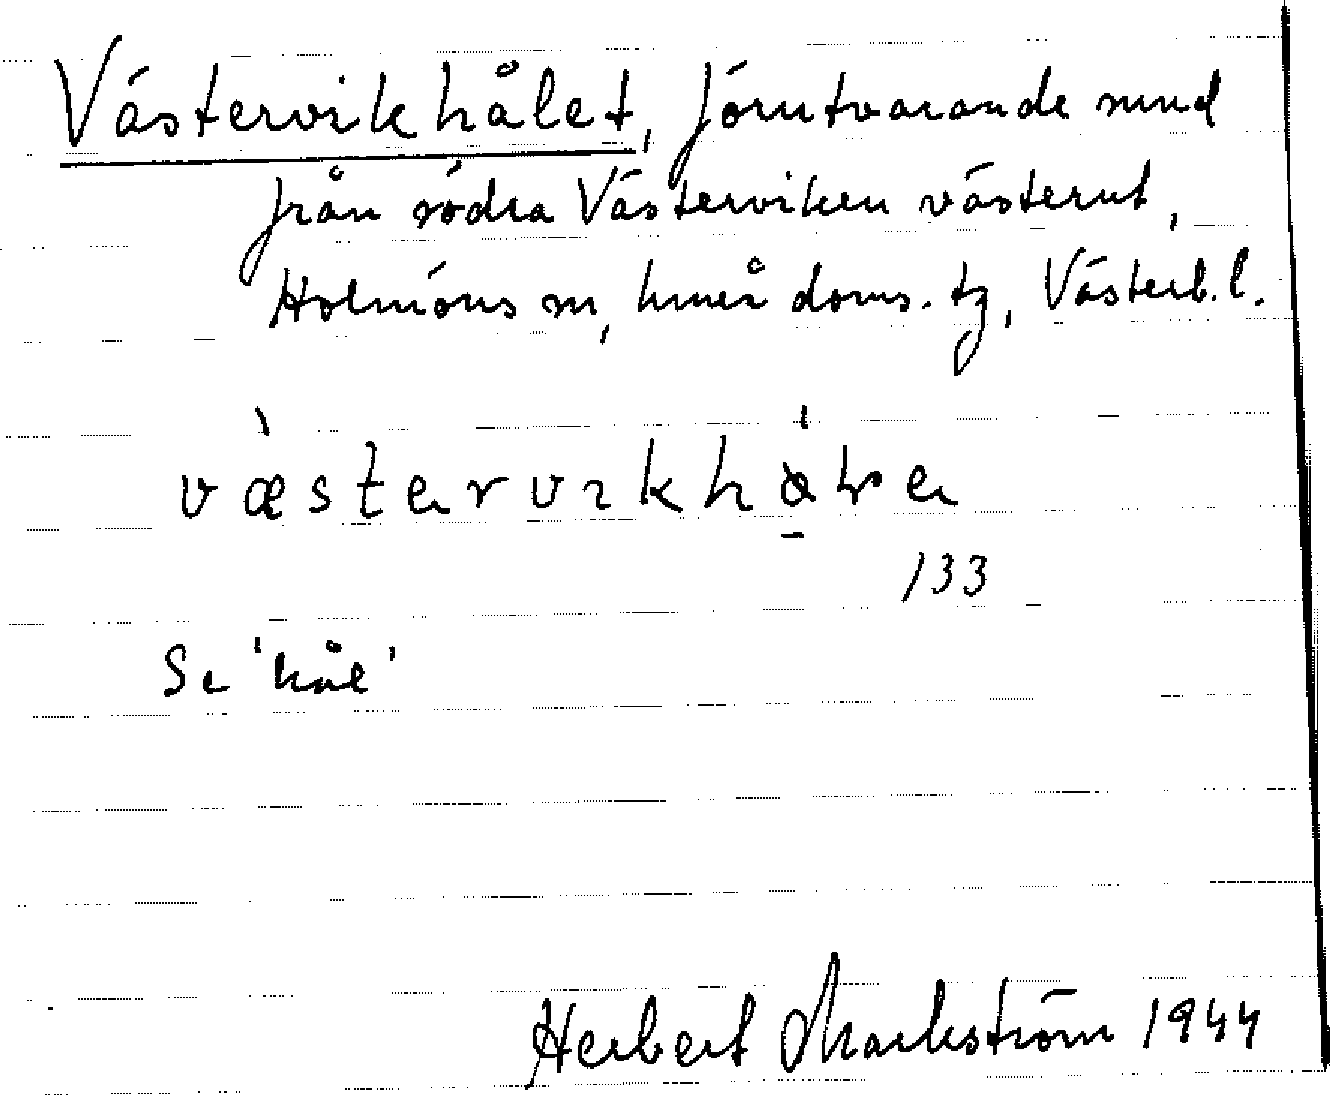 Västervikhålet, förutvarande sund
från södra Västerviken västerut,
Holmöns sn, Umeå doms. tg, Västerb. l.
væstervıkhåle
133
Se 'hål'
Herbert Markström 1944